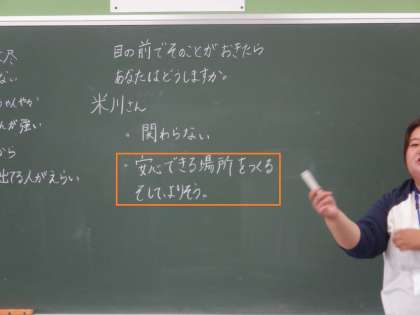 尽
ない
ちゃんやか
んが強い
から
出てる人がえらい
目の前でそのことがおきたら
あなたはどうしますか。
米川さん
・関わらない
・安心できる場所をつくる
そしてよりそう。